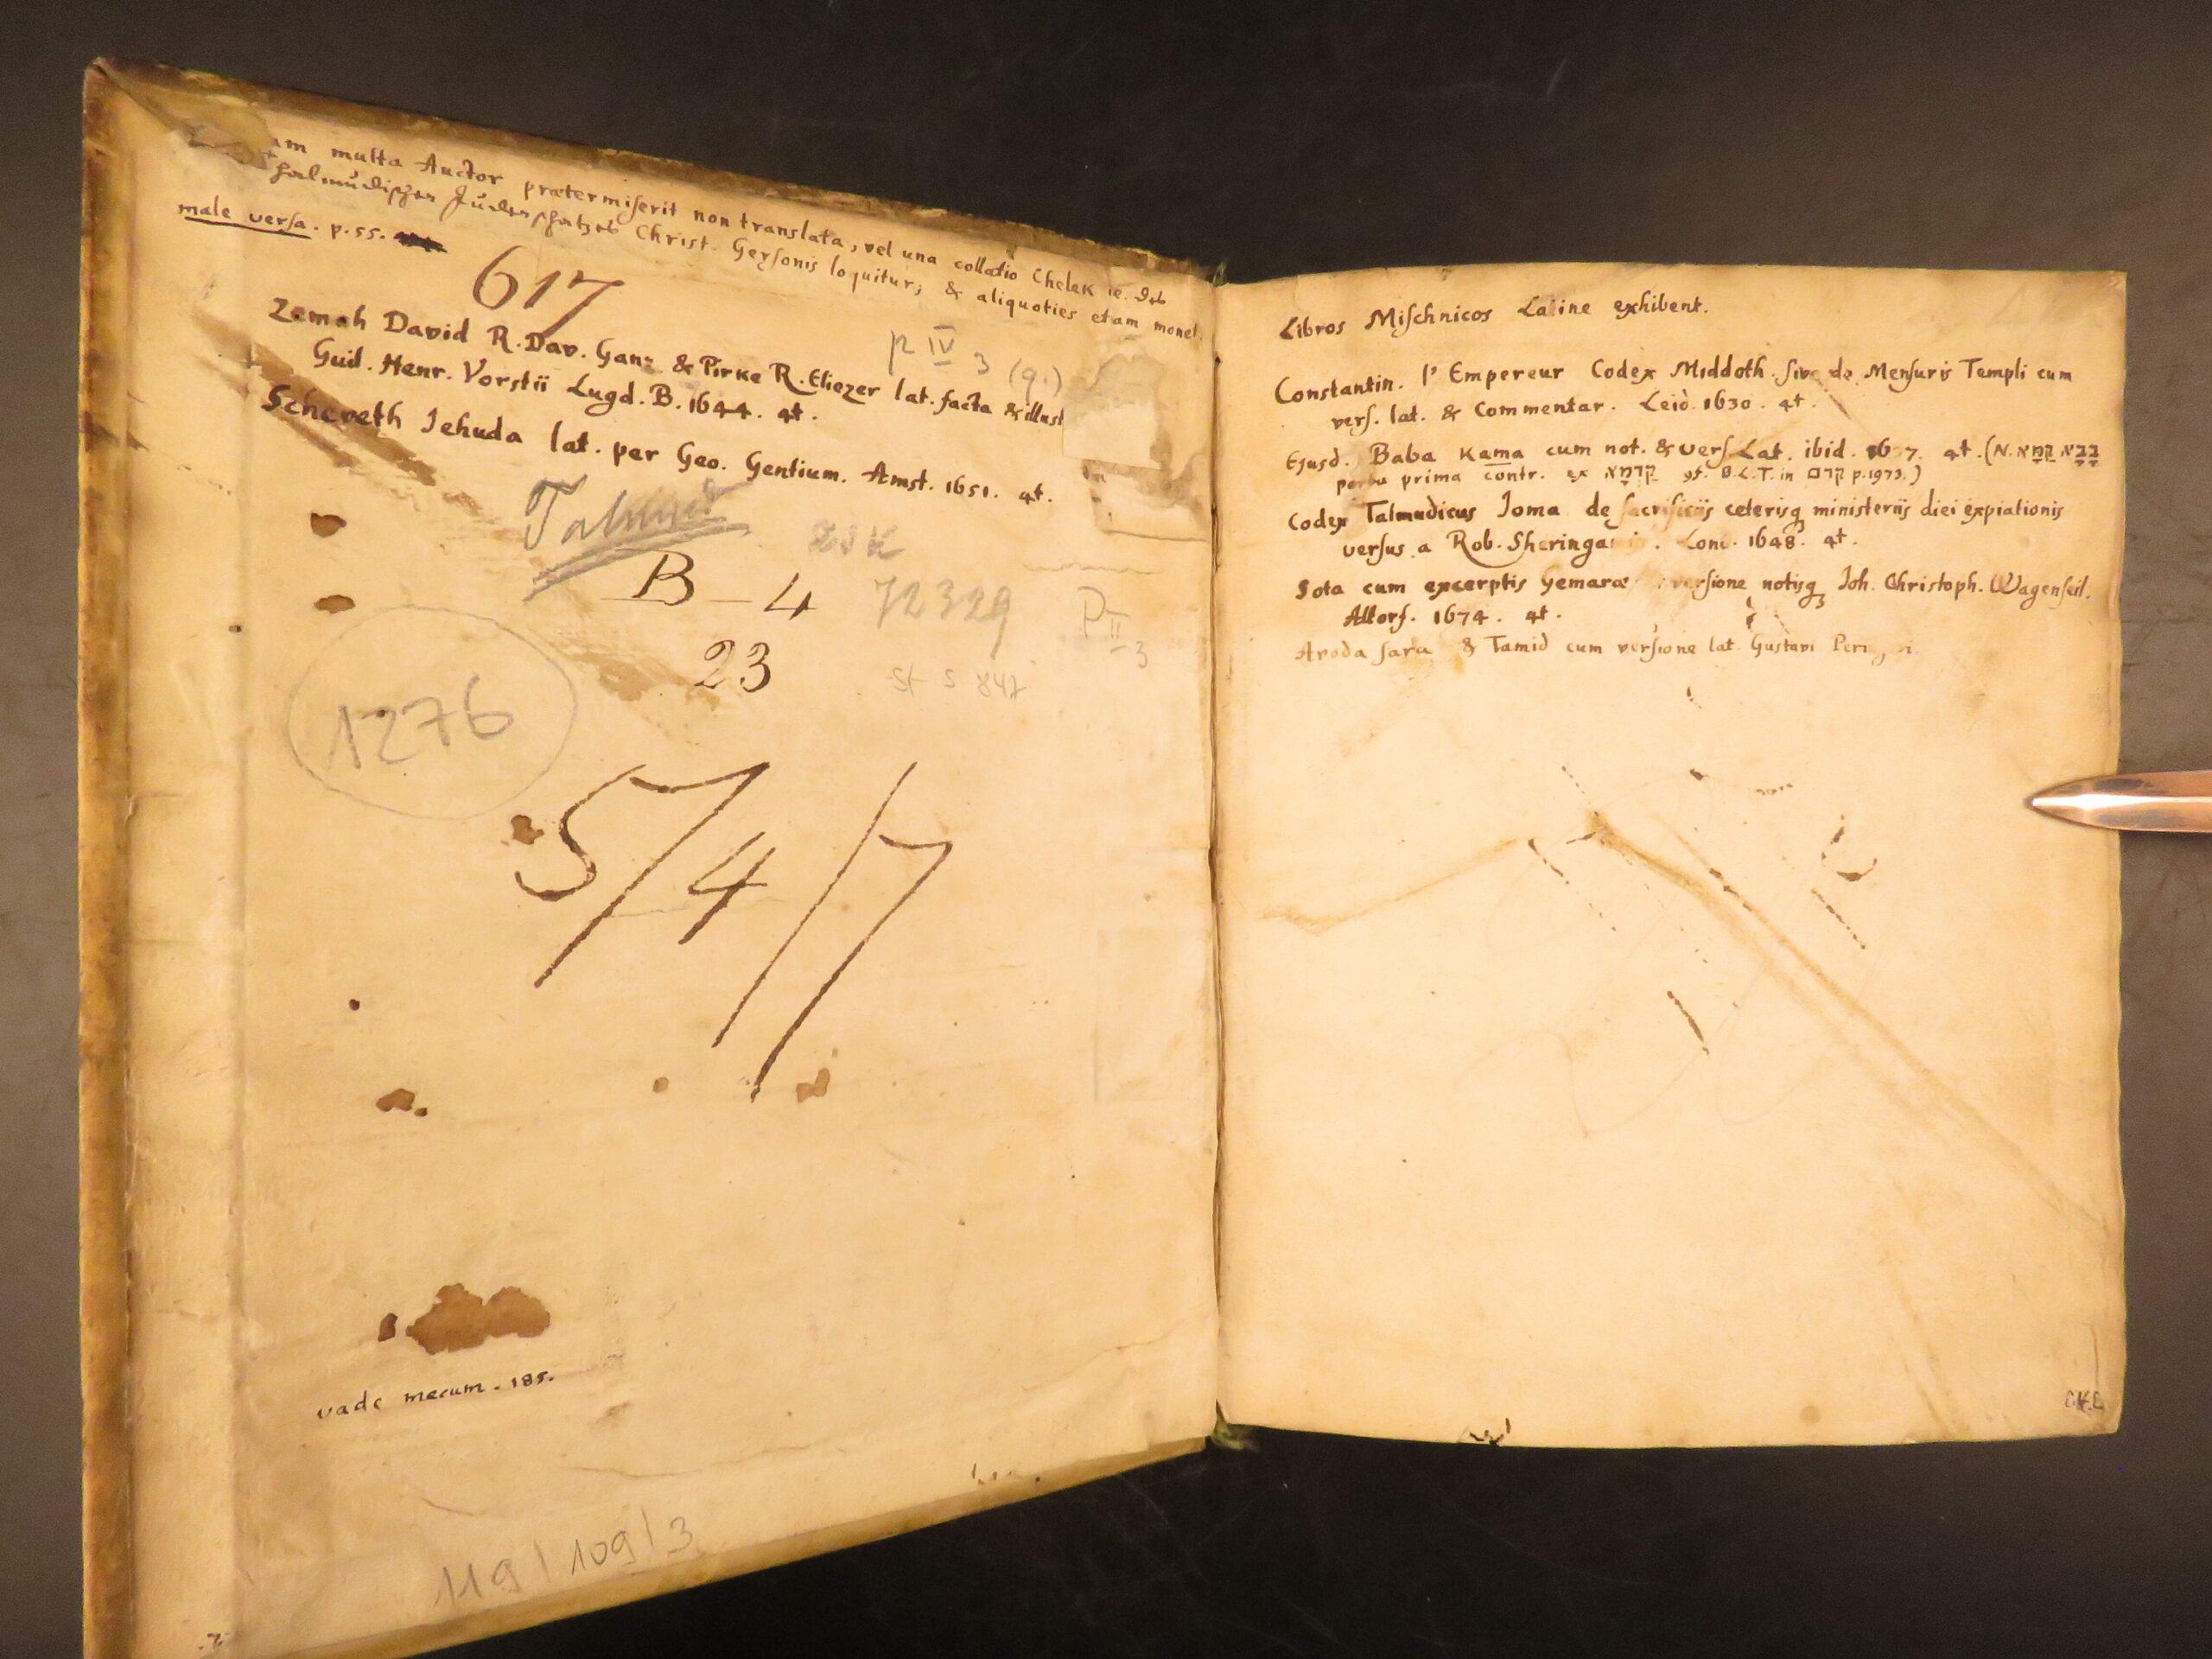 am multa Auctor prætermiserit non translata, vel una collatio Chelek ie. des
Talmudischen Judenschatzes Christ. Gersonis loquitur; & aliquoties etam monet
male versa. p. 55.
617
p IV 3 (q.)
Zemah David R. Dav. Ganz & Pirke R. Eliezer lat. facta & illust
Guil. Henr. Vorstii Lugd. B. 1644. 4t.
Scheveth Jehuda lat. per Geo. Gentium. Amst. 1651. 4t.
Talmud
B - 4
72329
P II 3
23
St S 847
1276
5/4/7
vade mecum. 185.
119/109/3
Libros Mischnicos Latine exhibent.
Constantin. l'Empereur Codex Middoth. sive de Mensuris Templi cum
vers. lat. & Commentar. Leid. 1630. 4t.
Ejusd. Baba Kama cum not. & vers Lat. ibid. 16 7. 4t. (N. בבא קמא
porta prima contr. ex קדמא vf. B.L.T. in קדם p. 1973.)
Codex Talmudicus Joma de sacrificiis ceterisq ministeriis diei expiationis
versus a Rob. Sheringa . Lond. 1648. 4t.
Sota cum excerptis Gemaræ versione notisq Joh. Christoph. Wagenseil.
Altorf. 1674. 4t.
Avoda sara & Tamid cum versione lat Gustavi